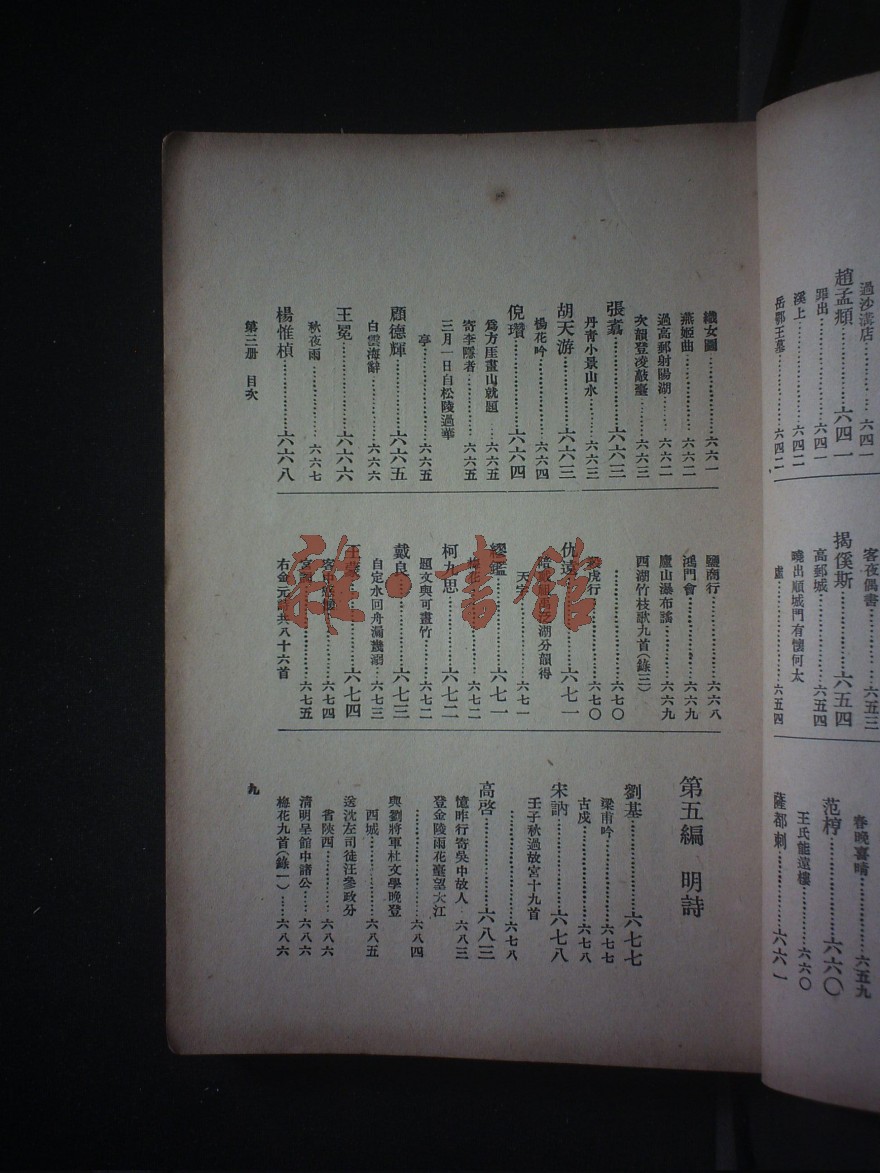 過沙溝店……六四一
趙孟頫……六四一
罪出……六四一
溪上……六四二
岳鄂王墓……六四二
客夜偶書……六五三
揭傒斯……六五四
高郵城……六五四
曉出順城門有懷何太
虛……六五四
春曉喜晴……六五九
范梈……六六〇
王氏能遠樓……六六〇
薩都刺……六六一
織女圖……六六一
燕姬曲……六六二
過高郵射陽湖……六六二
次韻登凌敲臺……六六三
張翥……六六三
丹青小景山水……六六三
胡天游……六六三
楊花吟……六六四
倪瓚……六六四
爲方厓畫山就題……六六五
寄李隱者……六六五
三月一日自松陵過華
亭……六六五
顧德輝……六六五
白雲海辭……六六六
王冕……六六六
秋夜雨……六六七
楊惟楨……六六八
第三册 目次
鹽商行……六六八
鴻門會……六六九
廬山瀑布謠……六六九
西湖竹枝歌九首(錄三)
……六七〇
虎行……六七〇
仇遠……六七一
湖分韻得
天字……六七一
繆鑑……六七一
……六七二
柯九思……六七二
題文與可畫竹……六七二
戴良……六七三
自定水回舟漏幾溺……六七三
王……六七四
客中……六七四
宮……六七五
右金元詩共八十六首
第五編 明詩
劉基……六七七
梁甫吟……六七七
古戍……六七八
宋訥……六七八
壬子秋過故宮十九首
……六七八
高啓……六八三
憶昨行寄吳中故人……六八三
登金陵雨花臺望大江
……六八四
與劉將軍杜文學晚登
西城……六八五
送沈左司徒汪參政分
省陝西……六八六
清明呈館中諸公……六八六
梅花九首(錄一)……六八六
九
雜·書館